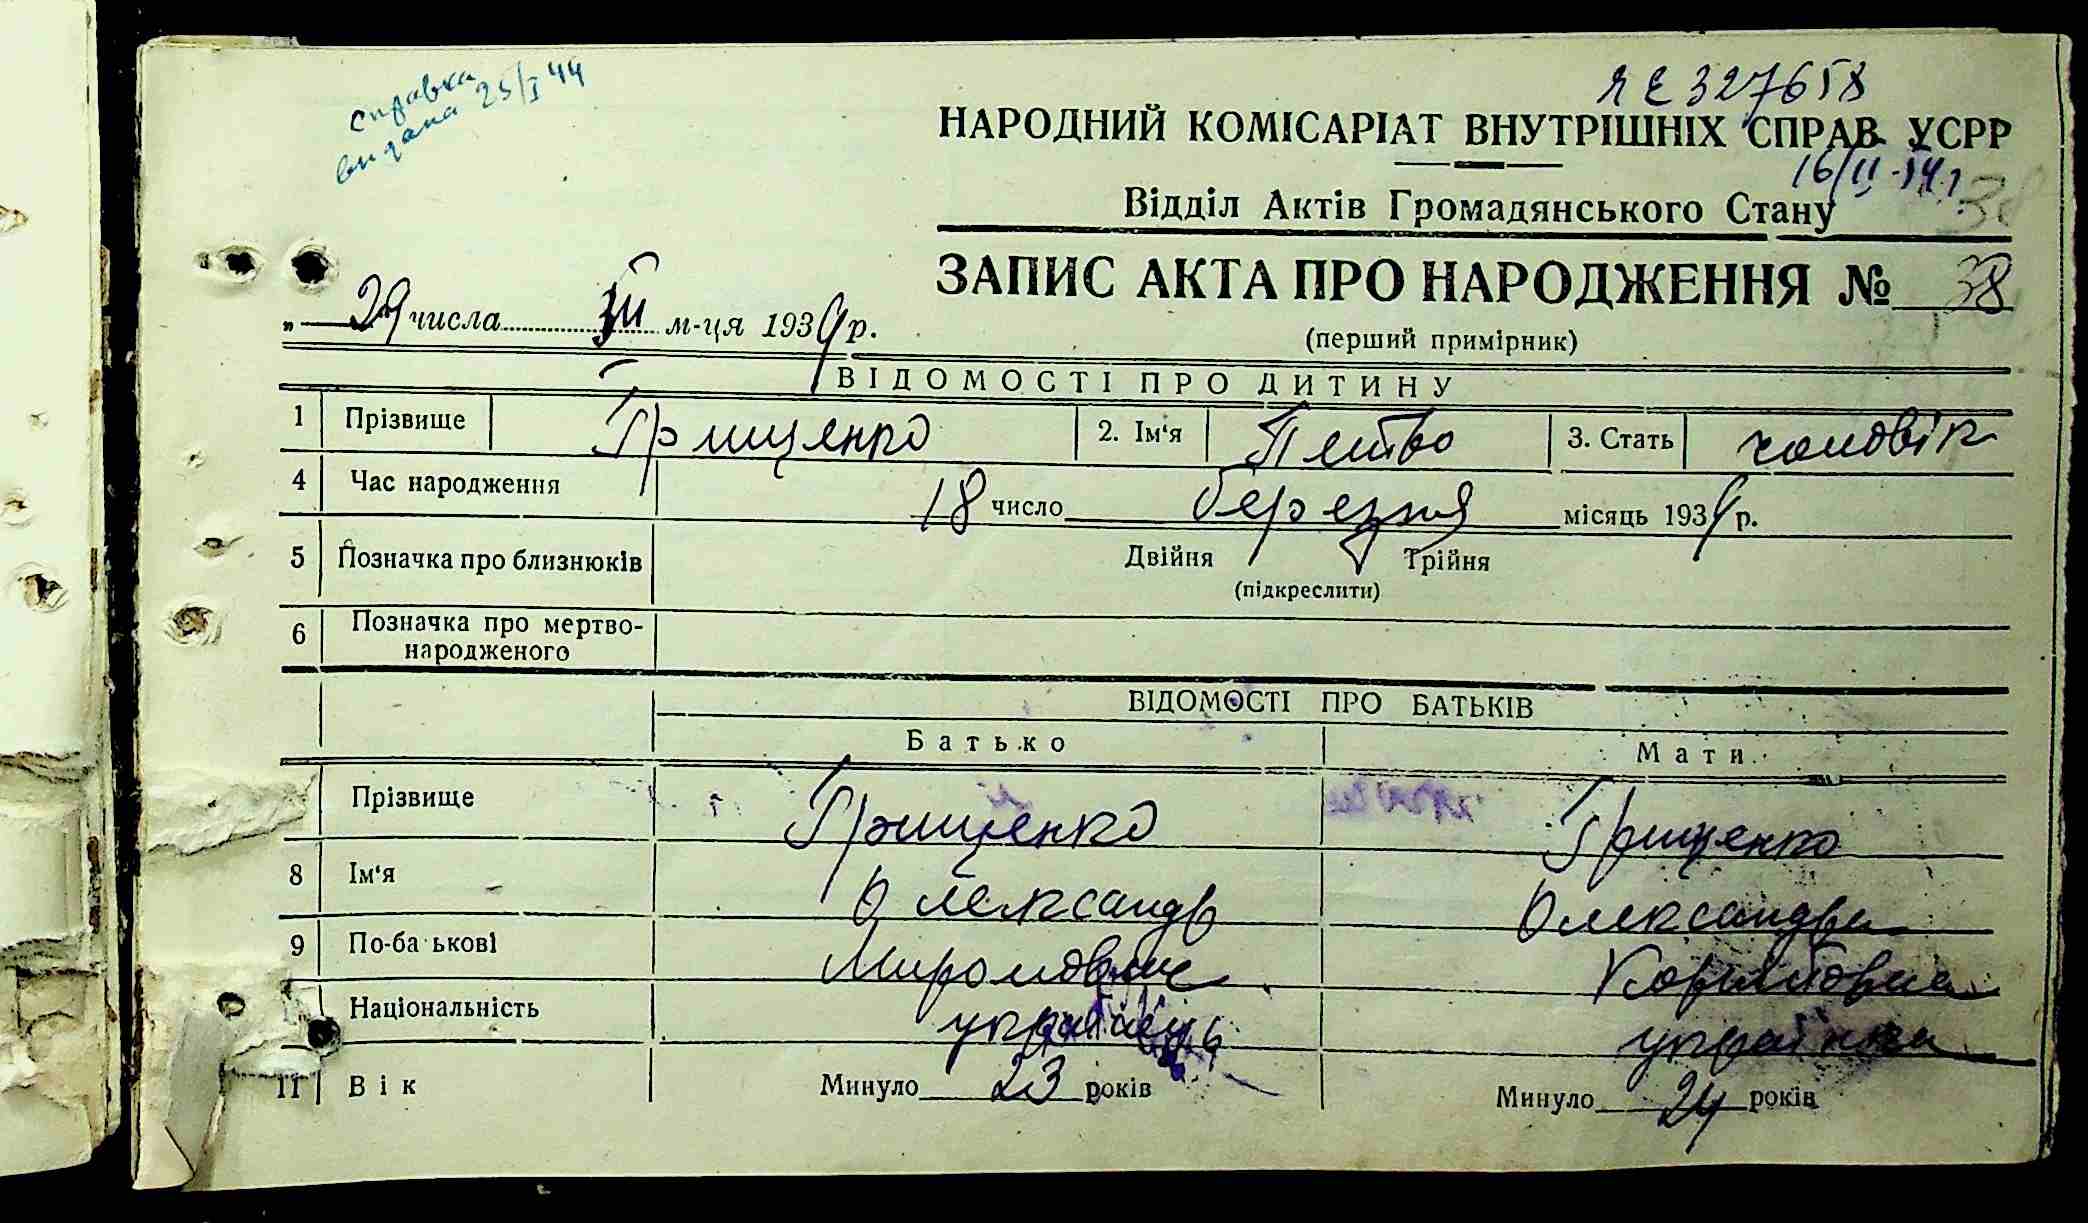 справка
видана 25/I 44
ЯЕ 327658
НАРОДНИЙ КОМІСАРІАТ ВНУТРІШНІХ СПРАВ УСРР
Відділ Актів Громадянського Стану
38
ЗАПИС АКТА ПРО НАРОДЖЕННЯ № 38
„ 29 числа III м-ця 1939 р.
(перший примірник)
ВІДОМОСТІ ПРО ДИТИНУ
1 Прізвище Грищенко 2. Ім'я Петро 3. Стать чоловік
4 Час народження 18 число березня місяць 1939 р.
5 Позначка про близнюків Двійня Трійня
(підкреслити)
6 Позначка про мертво-
народженого
ВІДОМОСТІ ПРО БАТЬКІВ
Батько Мати
Прізвище Грищенко Грищенко
8 Ім'я Олександр Олександра
9 По-ба ькові Миронович
Національність українець українка
11 Вік Минуло 23 років Минуло 24 років